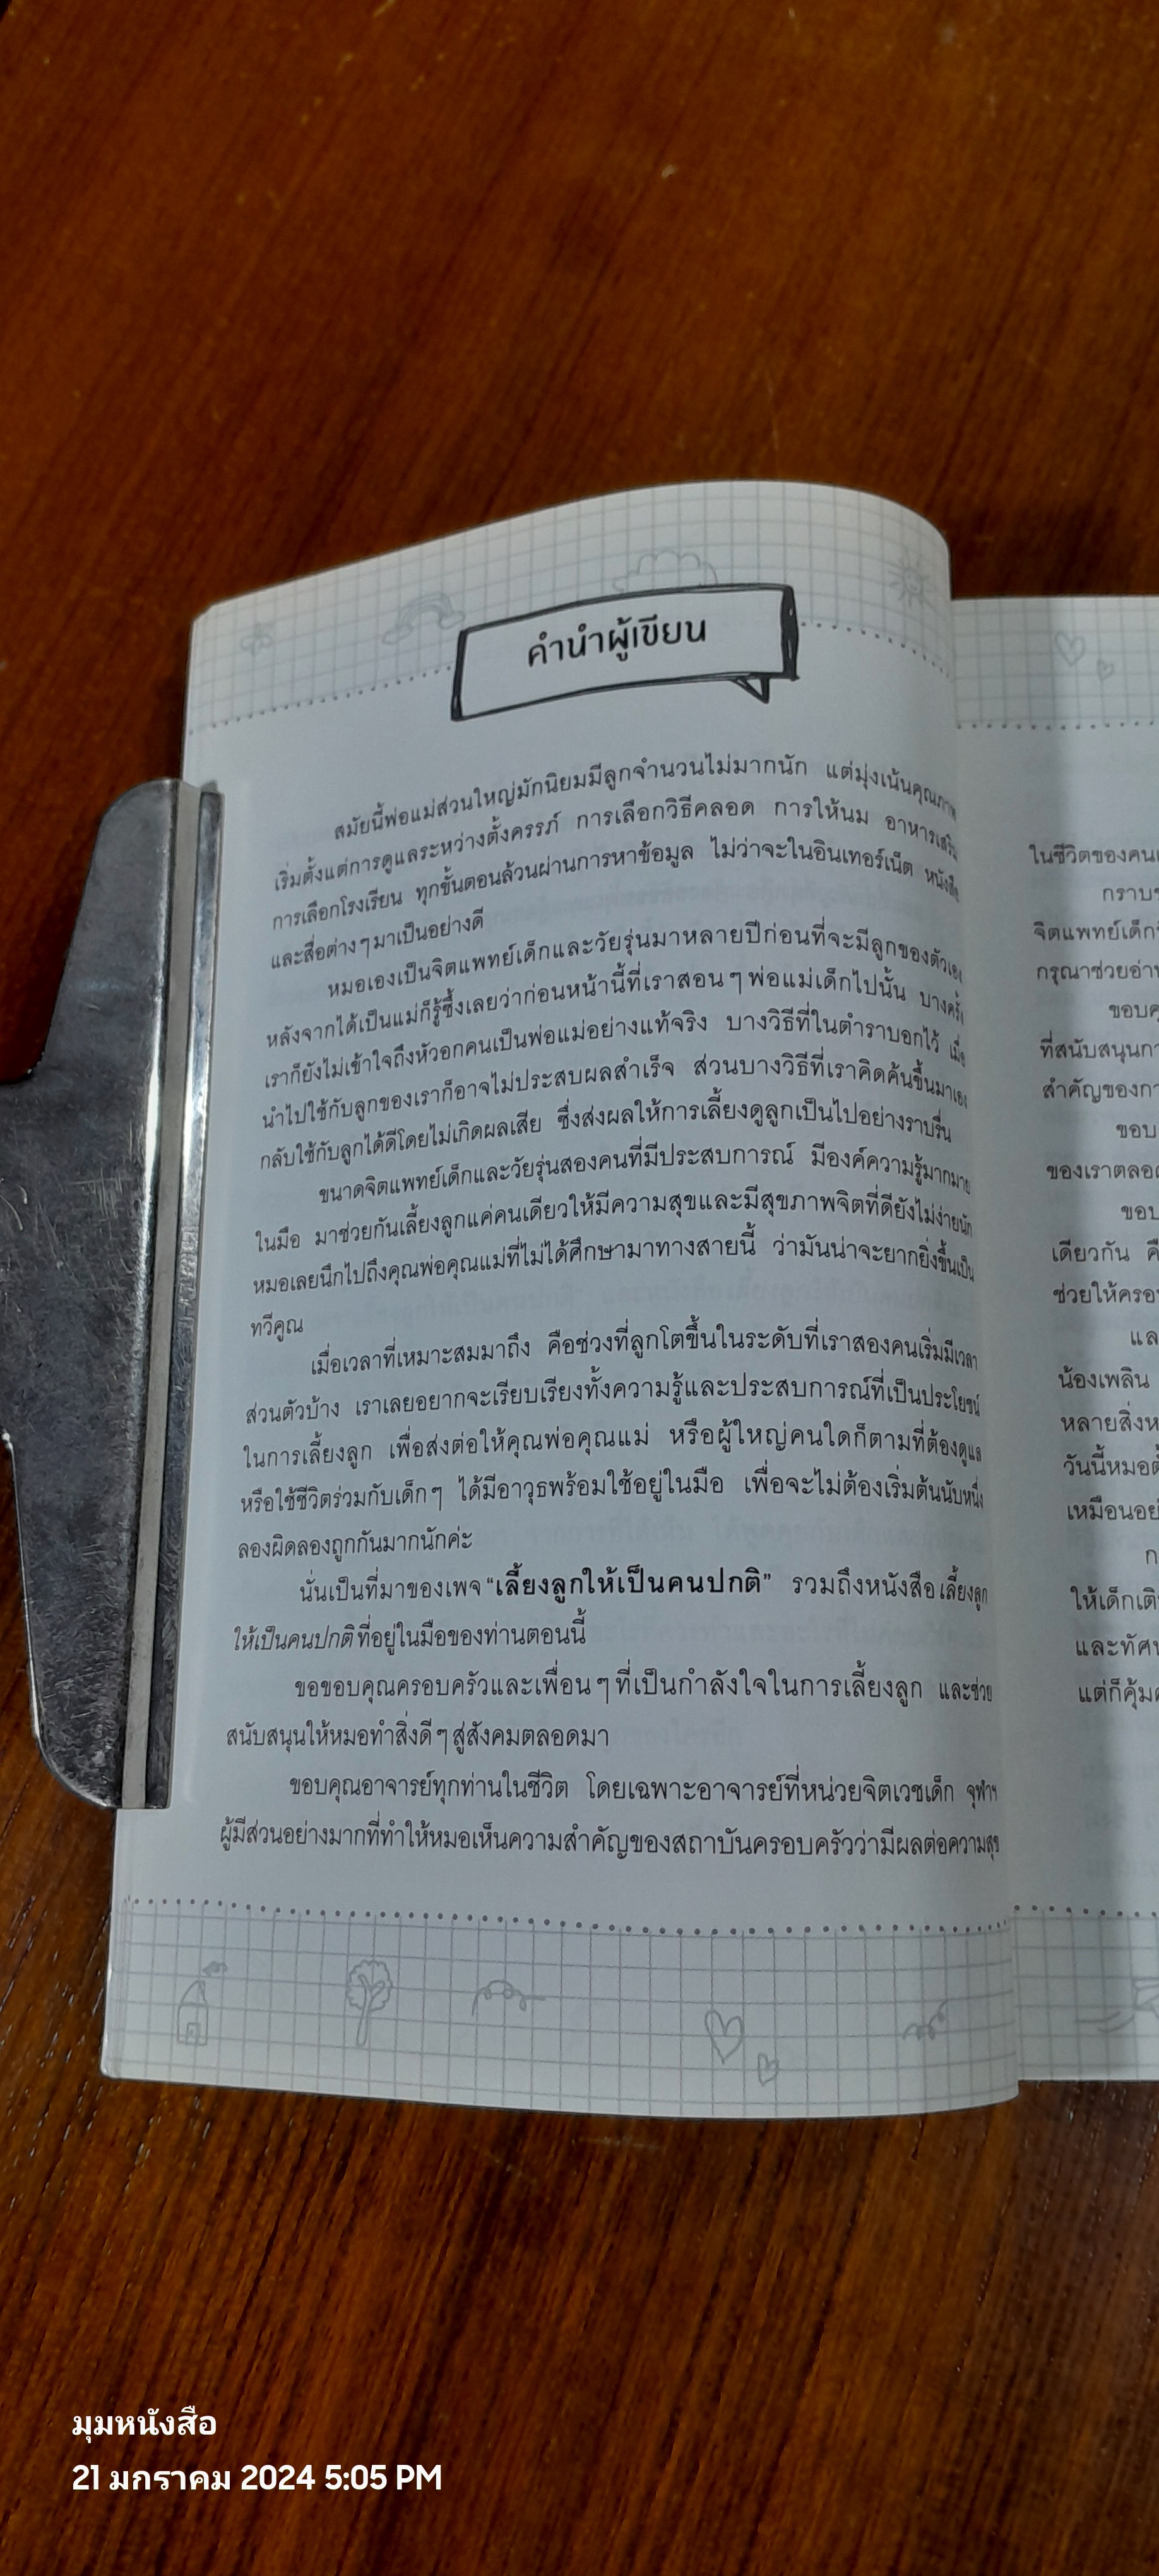 คำนำผู้เขียน
สมัยนี้พ่อแม่ส่วนใหญ่มักนิยมมีลูกจำนวนไม่มากนัก แต่มุ่งเน้นคุณภาพ
เริ่มตั้งแต่การดูแลระหว่างตั้งครรภ์ การเลือกวิธีคลอด การให้นม อาหารเสริม
การเลือกโรงเรียน ทุกขั้นตอนล้วนผ่านการหาข้อมูล ไม่ว่าจะในอินเทอร์เน็ต หนังสือ
และสื่อต่างๆ มาเป็นอย่างดี
หมอเองเป็นจิตแพทย์เด็กและวัยรุ่นมาหลายปีก่อนที่จะมีลูกของตัวเอง
หลังจากได้เป็นแม่ก็รู้ซึ้งเลยว่าก่อนหน้านี้ที่เราสอนๆ พ่อแม่เด็กไปนั้น บางครั้ง
เราก็ยังไม่เข้าใจถึงหัวอกคนเป็นพ่อแม่อย่างแท้จริง บางวิธีที่ในตำราบอกไว้ เมื่อ
นำไปใช้กับลูกของเราก็อาจไม่ประสบผลสำเร็จ ส่วนบางวิธีที่เราคิดค้นขึ้นมาเอง
กลับใช้กับลูกได้ดีโดยไม่เกิดผลเสีย ซึ่งส่งผลให้การเลี้ยงดูลูกเป็นไปอย่างราบรื่น
ขนาดจิตแพทย์เด็กและวัยรุ่นสองคนที่มีประสบการณ์ มีองค์ความรู้มากมาย
ในมือ มาช่วยกันเลี้ยงลูกแค่คนเดียวให้มีความสุขและมีสุขภาพจิตที่ดียังไม่ง่ายนัก
หมอเลยนึกไปถึงคุณพ่อคุณแม่ที่ไม่ได้ศึกษามาทางสายนี้ ว่ามันน่าจะยากยิ่งขึ้นเป็น
ทวีคูณ
เมื่อเวลาที่เหมาะสมมาถึง คือช่วงที่ลูกโตขึ้นในระดับที่เราสองคนเริ่มมีเวลา
ส่วนตัวบ้าง เราเลยอยากจะเรียบเรียงทั้งความรู้และประสบการณ์ที่เป็นประโยชน์
ในการเลี้ยงลูก เพื่อส่งต่อให้คุณพ่อคุณแม่ หรือผู้ใหญ่คนใดก็ตามที่ต้องดูแล
หรือใช้ชีวิตร่วมกับเด็กๆ ได้มีอาวุธพร้อมใช้อยู่ในมือ เพื่อจะไม่ต้องเริ่มต้นนับหนึ่ง
ลองผิดลองถูกกันมากนักค่ะ
นั่นเป็นที่มาของเพจ “เลี้ยงลูกให้เป็นคนปกติ” รวมถึงหนังสือ เลี้ยงลูก
ให้เป็นคนปกติ ที่อยู่ในมือของท่านตอนนี้
ขอขอบคุณครอบครัวและเพื่อนๆ ที่เป็นกำลังใจในการเลี้ยงลูก และช่วย
สนับสนุนให้หมอทำสิ่งดีๆ สู่สังคมตลอดมา
ขอบคุณอาจารย์ทุกท่านในชีวิต โดยเฉพาะอาจารย์ที่หน่วยจิตเวชเด็ก จุฬาฯ
ผู้มีส่วนอย่างมากที่ทำให้หมอเห็นความสำคัญของสถาบันครอบครัวว่ามีผลต่อความสุข
ในชีวิตของคน
กราบ
จิตแพทย์เด็ก
กรุณาช่วยอ่าน
ขอบคุ
ที่สนับสนุน
สำคัญของ
ขอบ
ของเราตลอด
ขอบ
เดียวกัน
ช่วยให้ครอบ
และ
น้องเพลิน
หลายสิ่ง
วันนี้หมอ
เหมือนอย่
ก
ให้เด็ก
และทัศน
แต่ก็คุ้ม
มุมหนังสือ
21 มกราคม 2024 5:05 PM